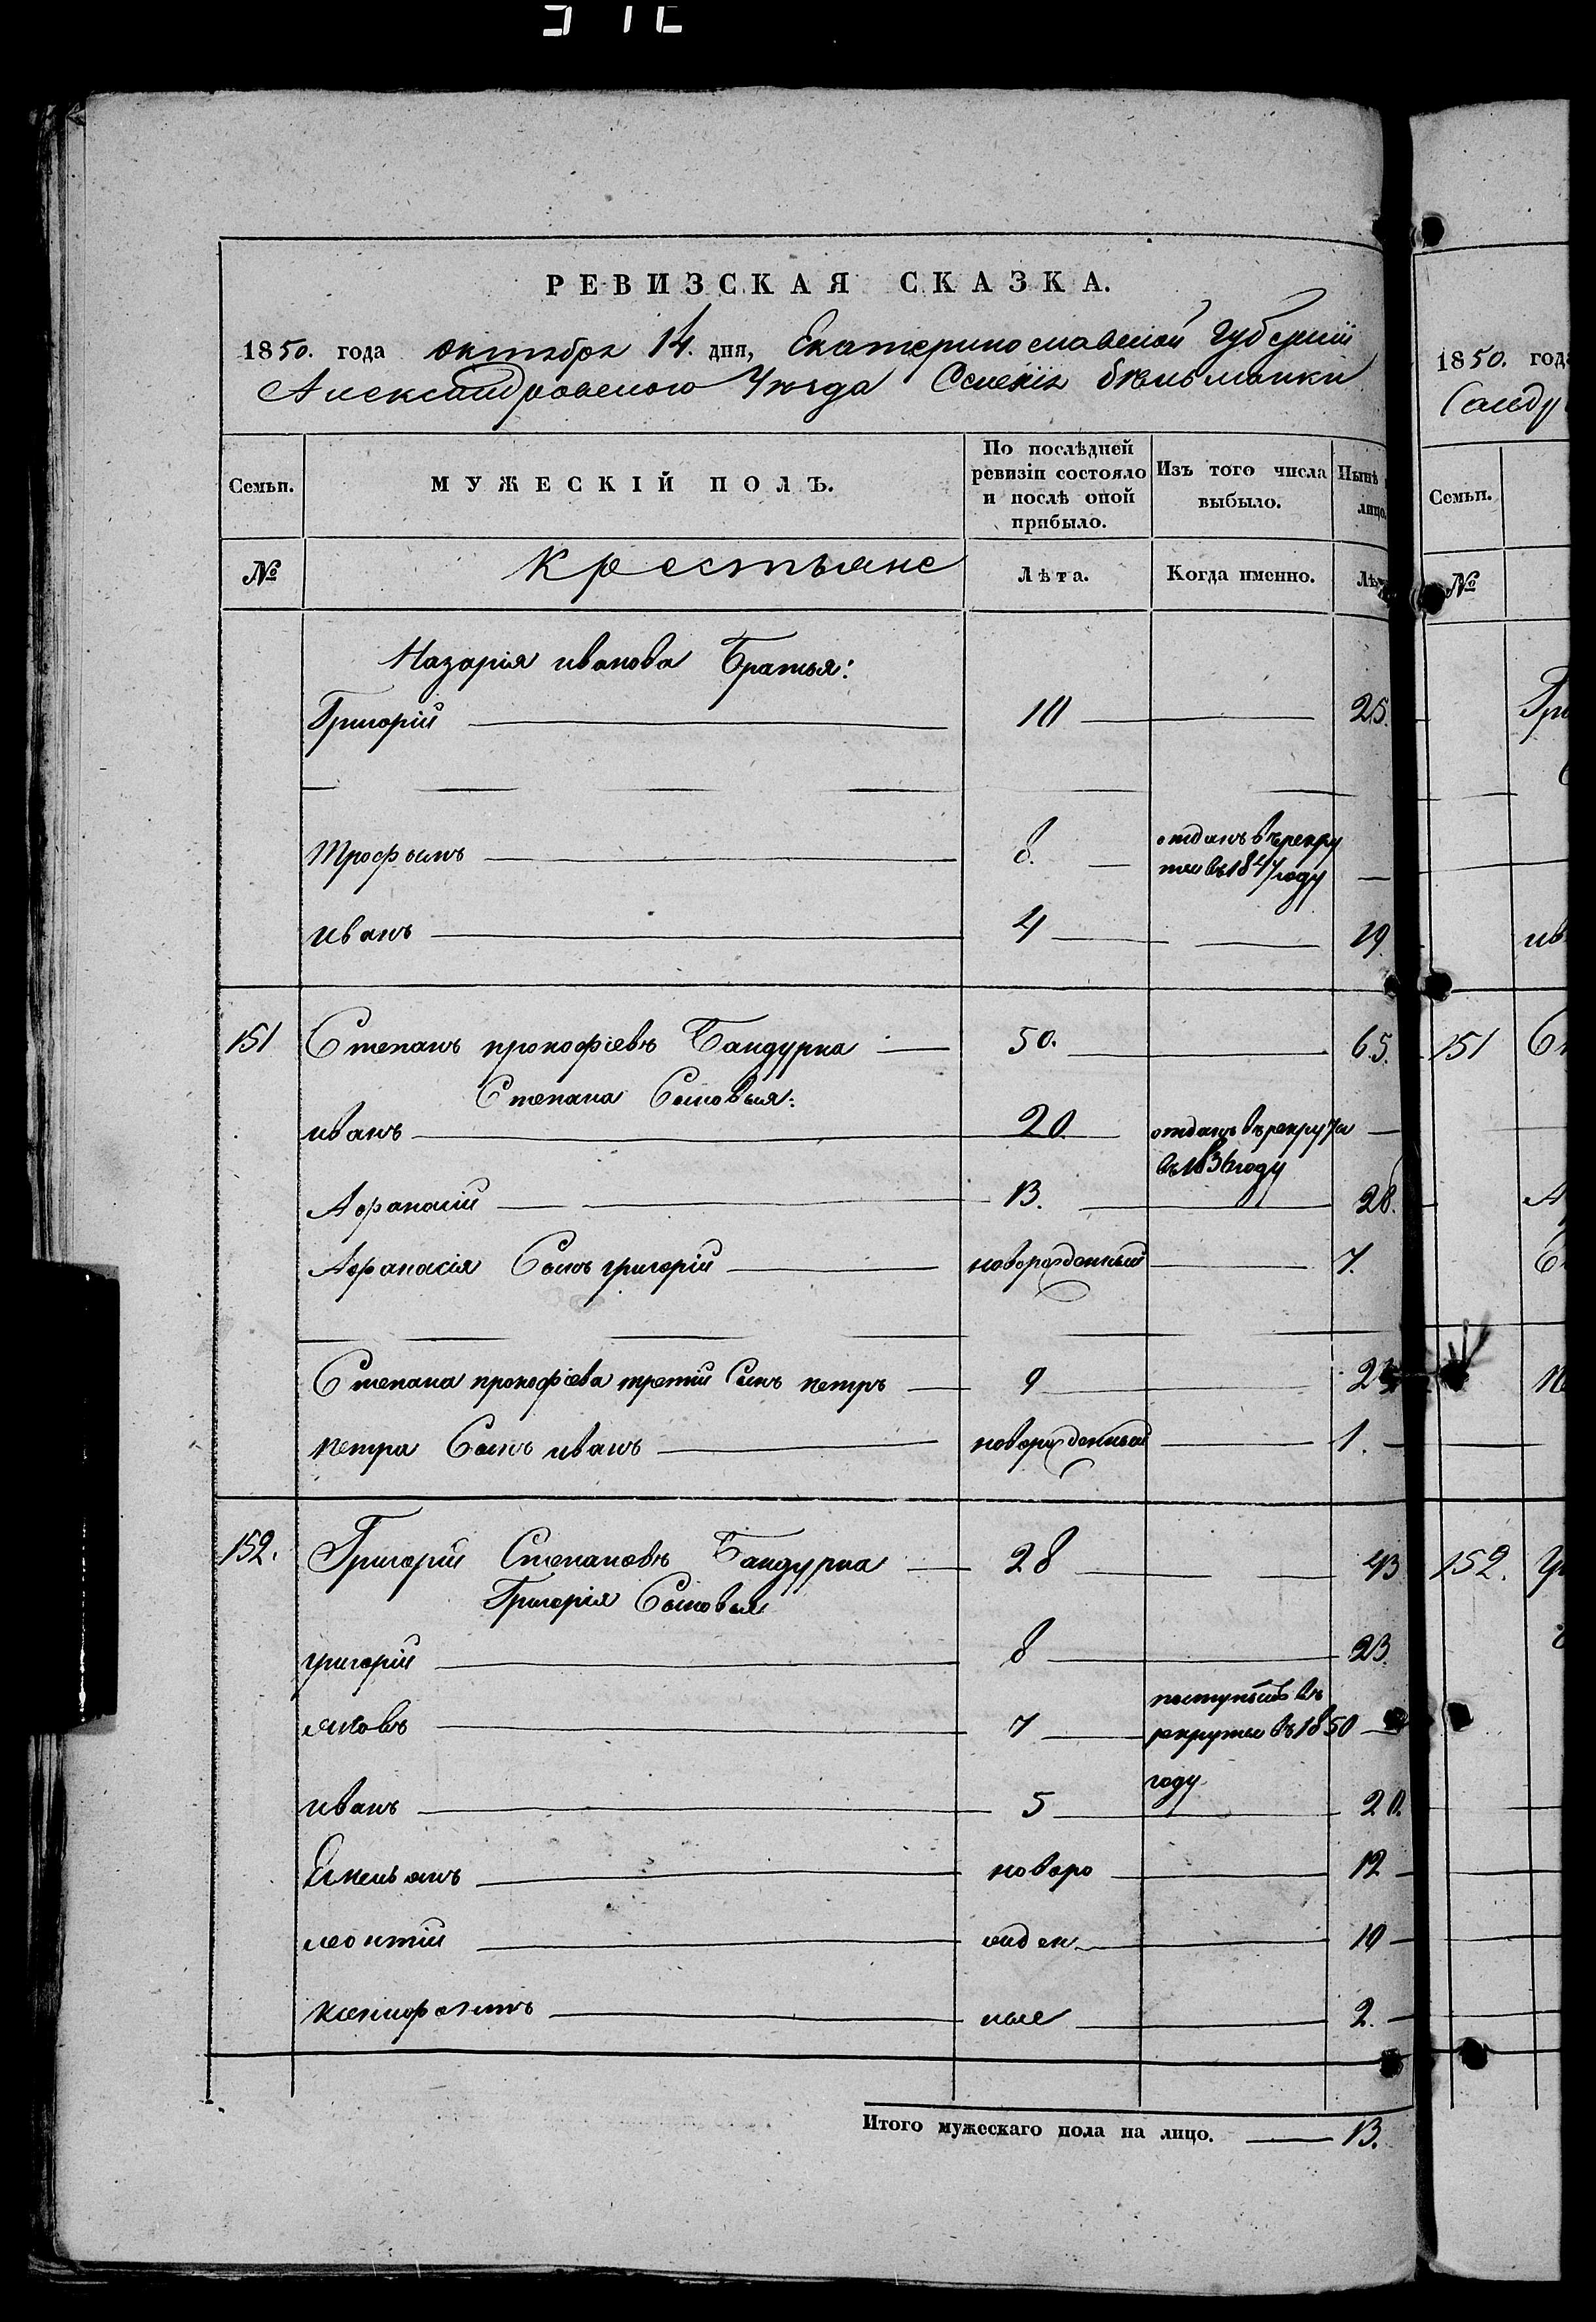 РЕВИЗСКАЯ СКАЗКА.
1850. года октября 14. дня, Екатеринославской Губерніи
Александровского Уезда Селенія бѣльманки
Семьи.
МУЖЕСКІЙ ПОЛЪ.
По послѣдней ревизіи состояло и послѣ оной прибыло.
Изъ того числа выбыло.
Нынѣ
лицо.
№
Крестьяне
Лѣта.
Когда именно.
Назарія иванова Братья:
Григорій 10 25.
Трофымъ 8. отданъ въ рекру
ты въ 1847 году
иванъ 4 19.
151 Степанъ прокофіевъ Бандурка 50. 65.
Степана Сыновья:
иванъ 20. отданъ въ рекрута
въ 1836 году
Афанасій 13. 28.
Афанасія Сынъ григорій новорожденный 7.
Степана прокофіева третій Сынъ петръ 9
петра Сынъ иванъ новорожденный 1.
152. Григорій Степановъ Бандурка 28 43
Григорія Сыновья
григорій 8 23.
яковъ 7 поступилъ въ
рекруты въ 1850
году
иванъ 5 20.
Емельянъ новоро 12
леонтій жден 10
ные 2.
Итого мужескаго пола на лицо. 13.
1850. года
Семьи.
№
151
152.